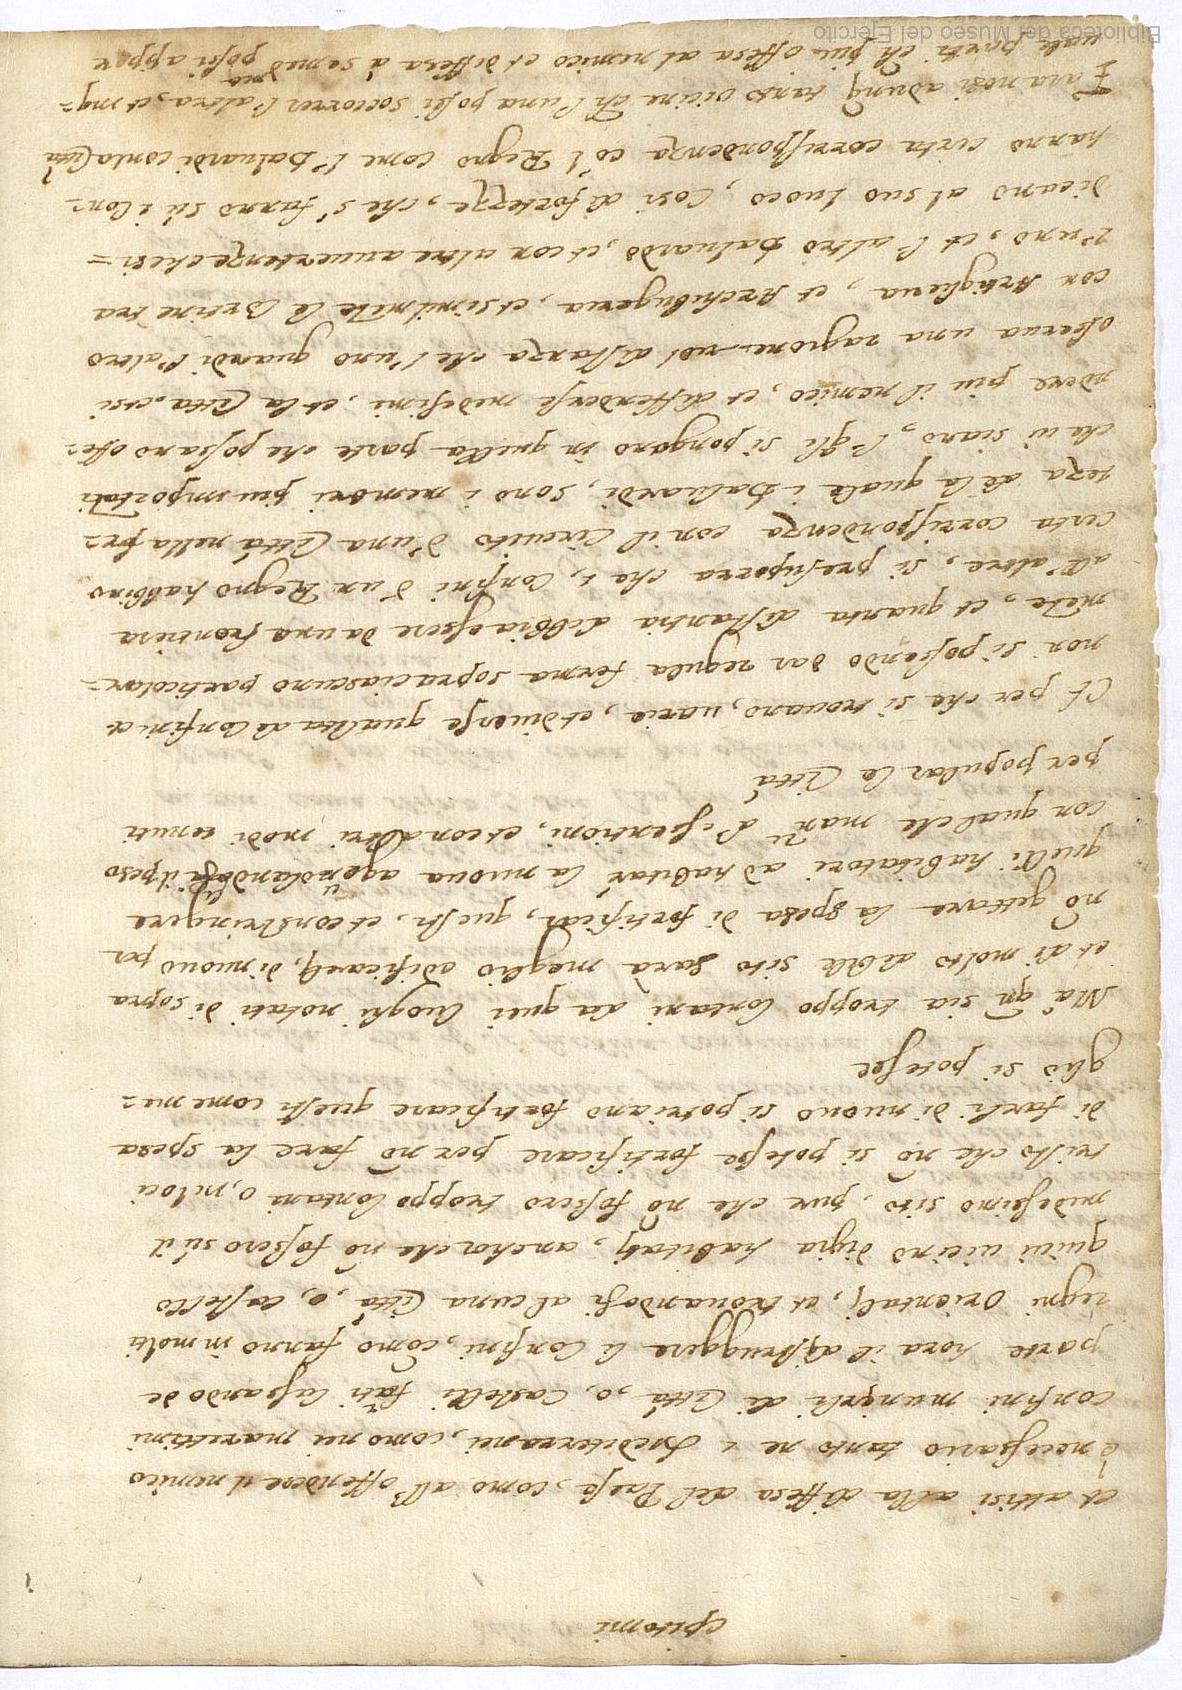 epitomi
et attisi alla diffesa del Paese, como all'offendere il nemico
è necessario tanto ne i Mediterranei, como nei marettimi
confini munirli di Città, o, Castelli fati lassando de
parte hora il destruggere li Confini, como fanno in molti
regni Orientali, et trouandosi alcuna Città, o, castello
quiui uicino digia habitati, anchor che nō fossero sù il
medessimo sito, pur che nō fossero troppo lontani o, ne loci
tristo che nō si potesse fortificare per nō fare la spesa
di farli di nuouo si potriano fortificare questi come me=
glio si potesse
Mà qn̄ sia troppo lontani da quei luoghi notati di sopra
et di molto debile sito sarà meglio edificarli di nuouo per
nō gettare la spesa di fortificar questi, et constringere
quelli habitatori ad habitar la nuoua ageuolandosi il peso
con qualche man̄ d'essentioni, et con altri modi tenuti
per popular le Città
Et per che si trouano, uarie, et diuerse qualita de Confini et
non si possendo dar regula ferma sopra ciascuno particolar=
mēte, et quanta distantia debbia essere da una frontiera
all'altra, si presuporra che i, Confini d'un Regno habbino
certa corrispondenza con il Circuito d'una Città nella for=
teza de la quale i Baluardi, sono i membri piu importāti
che ui siano, l'gli si pongano in quella parte che possano offe=
ndere più il nemico, et diffendersi medesimi, et la Città. et si
osserua una ragioneuol distanza che l'uno guardi l'altro
con Artiglieria, et Archibugeria, et similmēte le Cortine tra
l'uno, et l'altro Baluardo, et con altre auuertenze che si =
dicano al suo luoco, Così di fortezze, che s'fanno sù i Con=
hanno certa corrispondenza cō'l Regno come l' Baluardi con la Città
Faranosi adunq̄ tanto vicine ch̄ l'una possi soccorrer l'altra, et in q=
uale parti ch̄ piu offesa al nemico et diffesa à se med.mo possi appor
Biblioteca del Museo del Ejercito